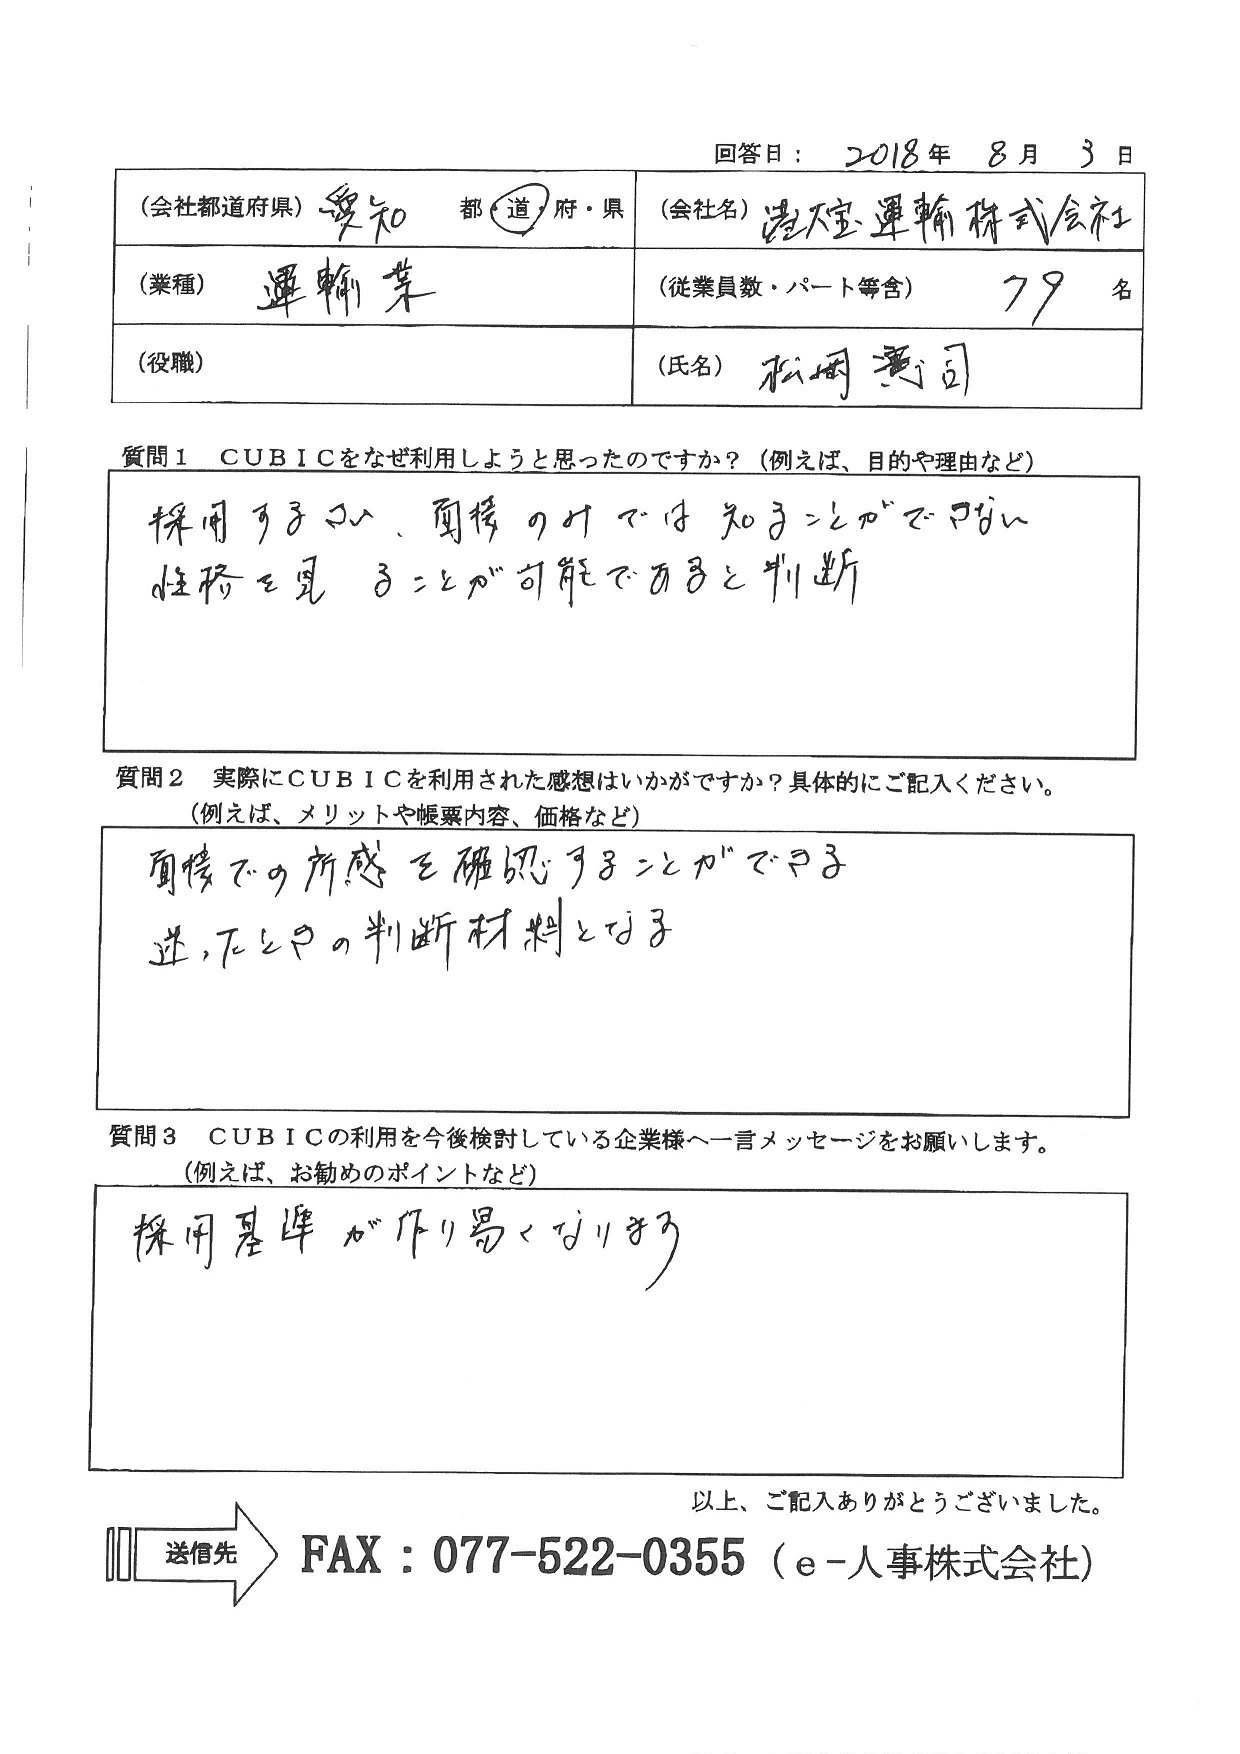 回答日： 2018年 8月 3日
（会社都道府県） 愛知 都・道・府・県
（会社名） 港大宝運輸株式会社
（業種） 運輸業
（従業員数・パート等含） 79 名
（役職）
（氏名） 松岡 憲司
質問１ ＣＵＢＩＣをなぜ利用しようと思ったのですか？（例えば、目的や理由など）
採用するさい、面接のみでは知ることができない
性格を見ることが可能であると判断
質問２ 実際にＣＵＢＩＣを利用された感想はいかがですか？具体的にご記入ください。
（例えば、メリットや帳票内容、価格など）
面接での所感を確認することができる
迷ったときの判断材料となる
質問３ ＣＵＢＩＣの利用を今後検討している企業様へ一言メッセージをお願いします。
（例えば、お勧めのポイントなど）
採用基準が作り易くなります
以上、ご記入ありがとうございました。
送信先 FAX：077-522-0355（e-人事株式会社）